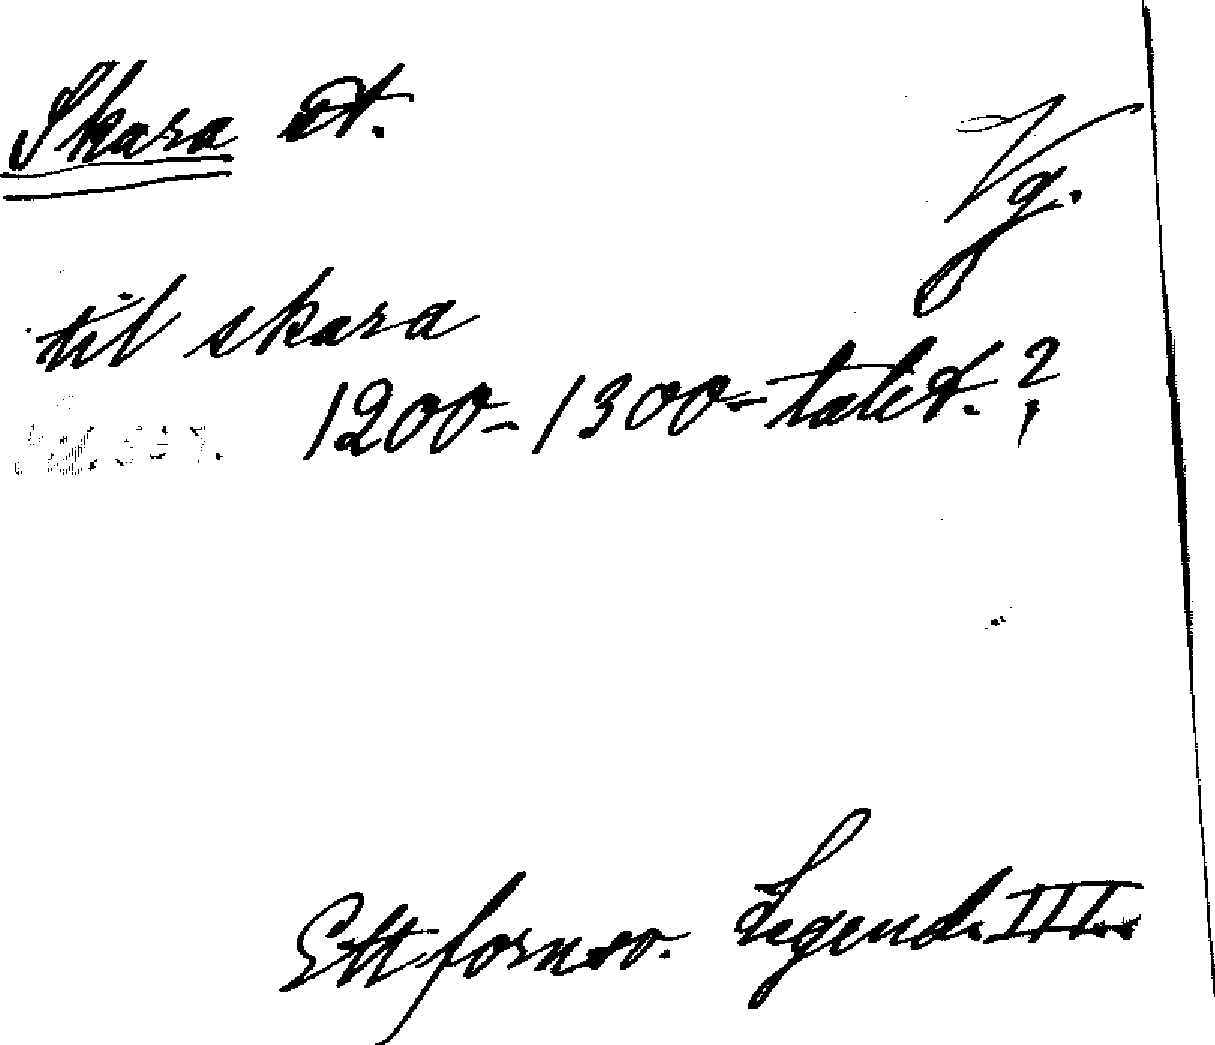 Skara st. Vg.
til skara
1200-1300-talet.?
Ett fornsv. Legend. III.